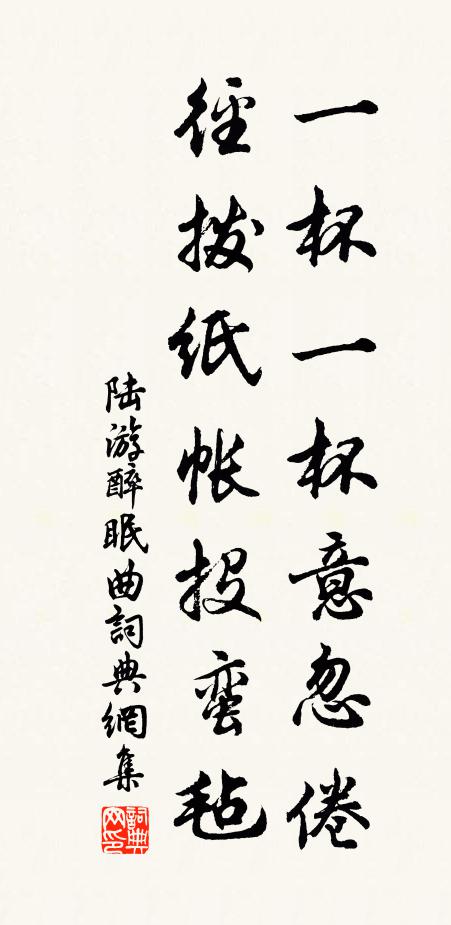 一杯一杯意忽倦
径拨纸帐投蛮毡
陆游醉眠曲詞典網集
詞典网印